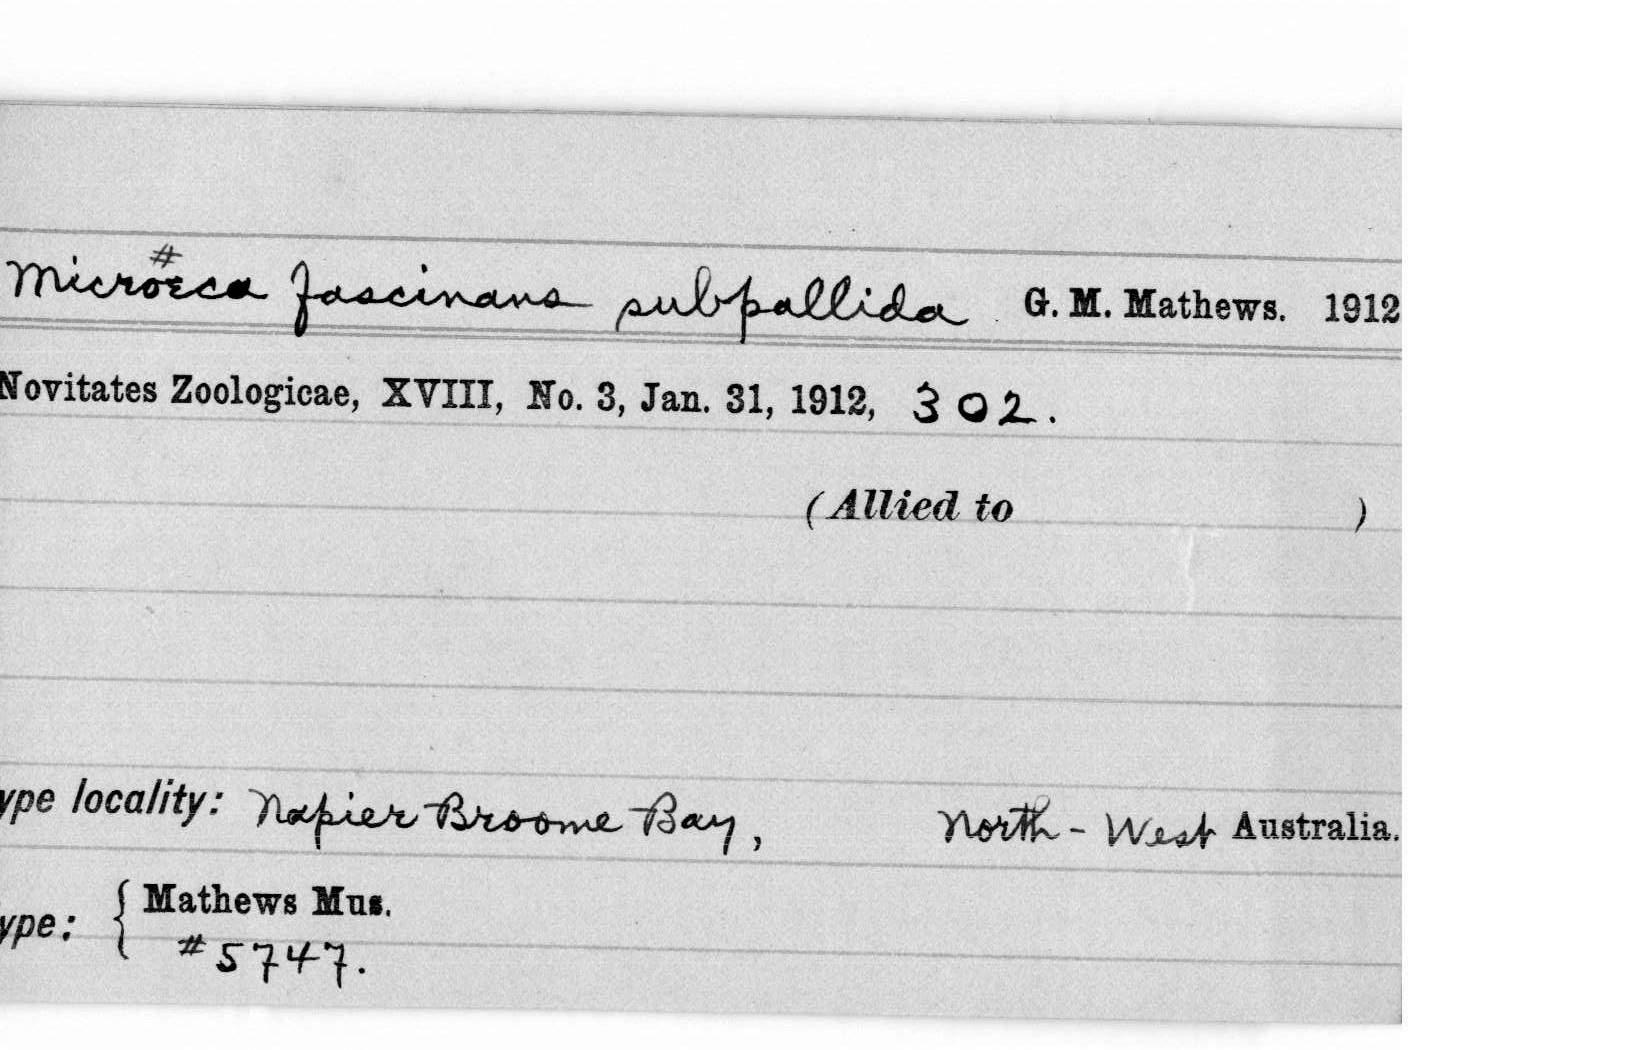 #
Microeca fascinans subpallida G. M. Mathews. 1912
Novitates Zoologicae, XVIII, No. 3, Jan. 31, 1912, 302.
(Allied to )
ype locality: Napier Broome Bay, North-West Australia.
ype: { Mathews Mus.
#5747.